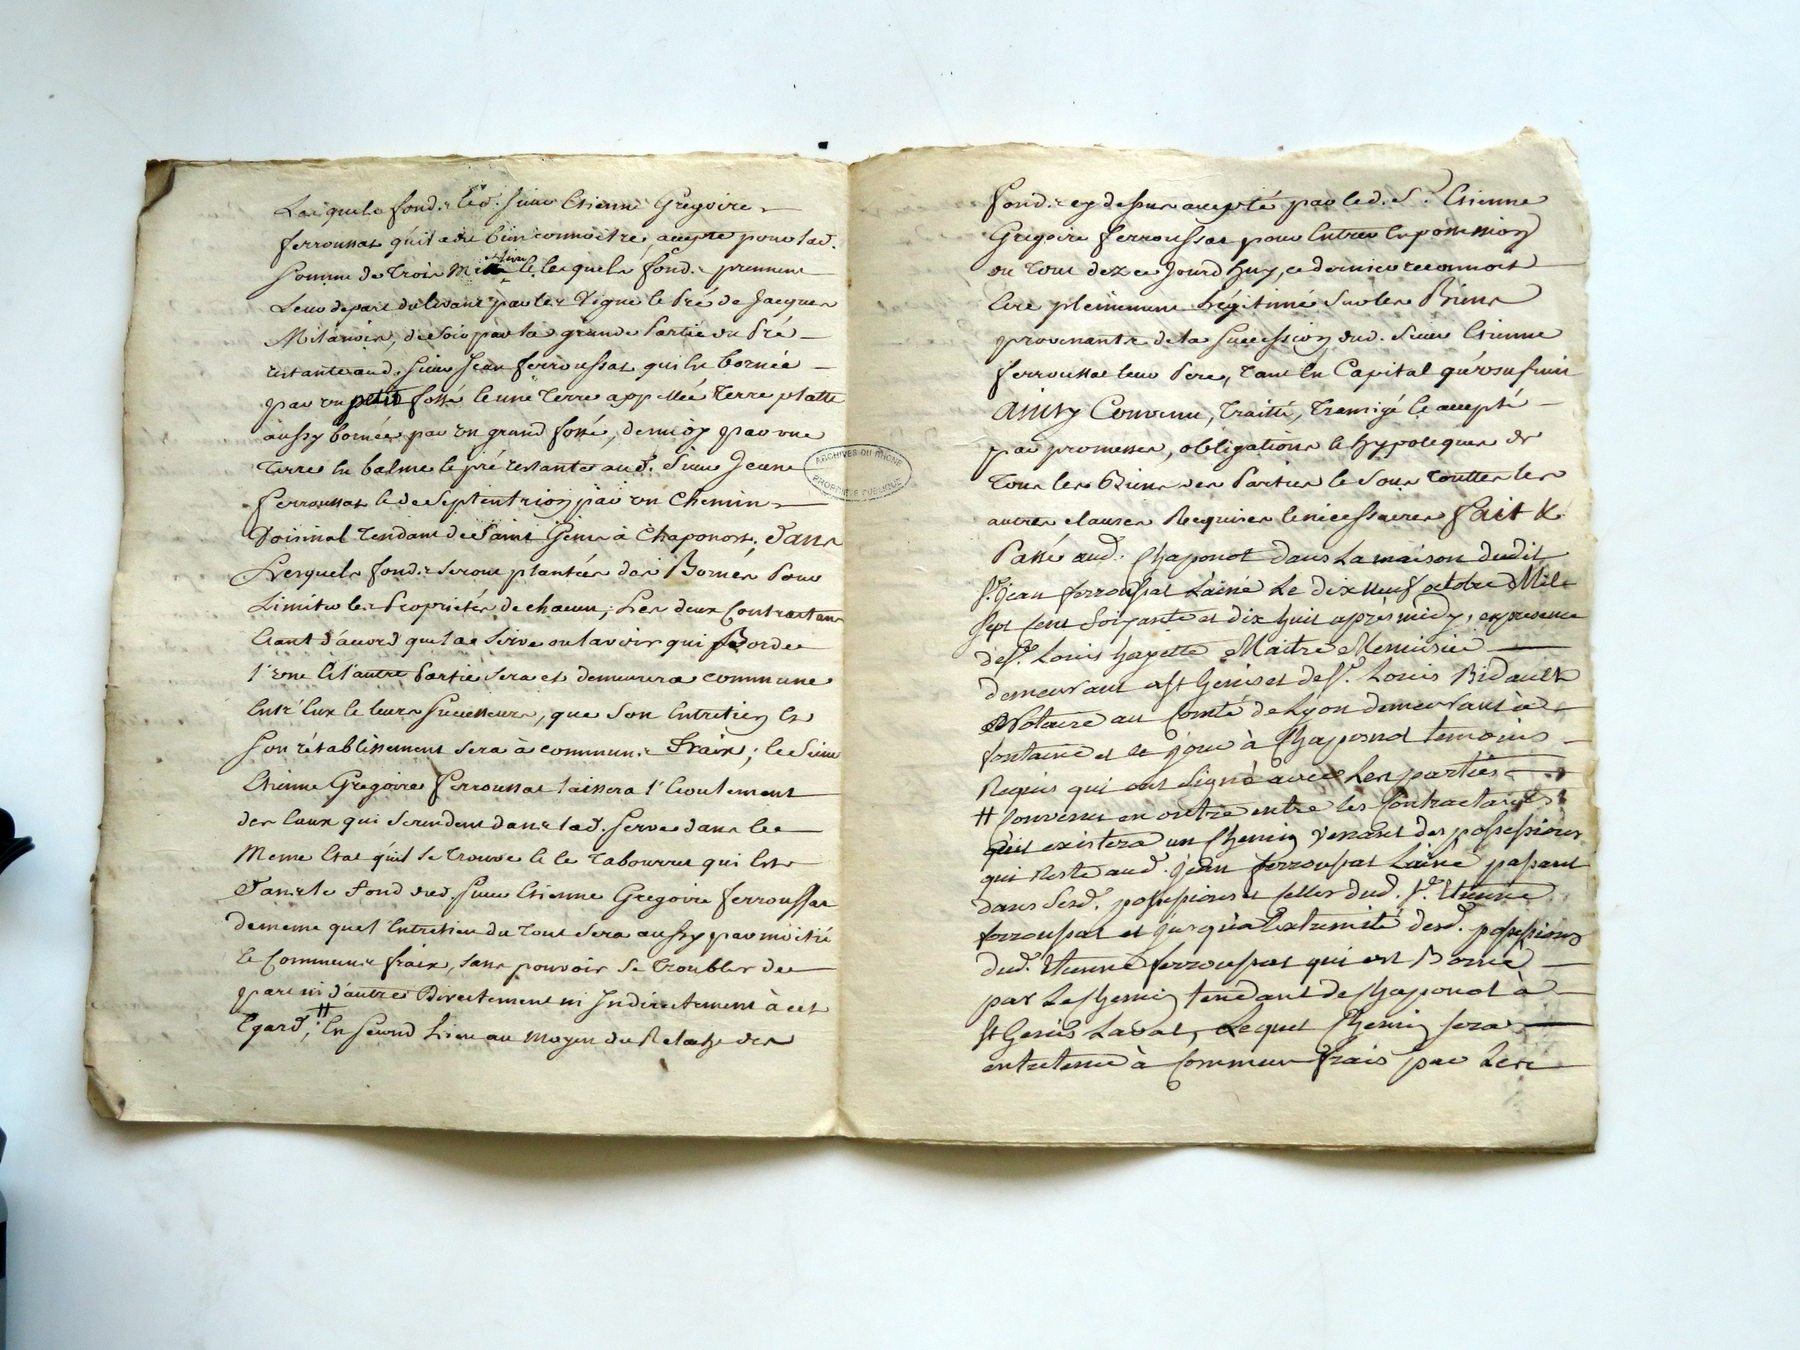 Lesquels fonds led. sieur Etienne Gregoire
ferroussat qu'il a dit bien connoitre, accepte pour lad.
Somme de Trois Mille livres et lesquels fonds prennent
Leur depart du levant par les Vigne le Pré de Jacques
de Soir par la grande Partie du Pré
restante aud. sieur Jean ferroussat qui Est bornée
par un petit fossé et une Terre appellée Terre platte
aussy bornée par un grand fossé, de midy par une
Terre En balme le pré restante aud. Sieur Jean
ferroussat et de Septentrion par un Chemin
Voisinal Tendant de Saint Genis à Chaponost. Dans
Lesquels fonds seront plantées des Bornes Pour
Limiter les Propriétés de chacun; Les deux Contractans
Etant d'accord que la Serve ou lavoir qui Borde
l'une Et l'autre Partie sera et demeurera commune
Entr'Eux et leurs Successeurs, que Son Entretien Et
Son rétablissement sera à communs Fraix; le Sieur
Etienne Gregoire ferroussat laissera l'Ecoulement
des Eaux qui Se rendent dans lad. Serve dans le
Meme Etat qu'il se Trouve et le Tabourret qui Est
Dans le Fond dud. Sieur Etienne Gregoire ferroussat
de meme que l'Entretien du Tout Sera aussy par moitié
et Communs fraix, sans pouvoir se Troubler de
part ni d'autre Directement ni Indirectement à cet
Egard; # En Second Lieu au Moyen du Relache des
ARCHIVES DU RHONE
PROPRIÉTÉ PUBLIQUE
fonds cy dessus accepté par led. Sr. Etienne
Gregoire ferroussat pour Entrer En possession
du Tout dez ce Jourd'huy, ce dernier reconnoit
Etre pleinement Légitimé sur les Biens
provenants de la Succession dud. Sieur Etienne
ferroussat leur Pere, Tant En Capital qu'usufruit
Ainsy Convenu, Traité, Transigé et accepté
par promesses, obligations et hypoteques de
Tous les Biens des Parties et Sous Touttes les
autres clauses Requises et nécessaires fait &
Passé aud. Chaponot dans La maison dudit
Sr. jean ferroussat L'ainé Le dix neuf octobre Mil
Sept Cent Soixante et dix huit après midy, en presence
de Sr. Louis hayette Maitre Menuisier
demeurant a St Genis et de Sr. Louis Bidault
Notaire au Comté de Lyon demeurant à
fontaine et ce jour à Chaponot temoins
Requis qui ont signé avec Les parties
# Convenu en outre entre les Contractants
qu'il existera un Chemin venant des possessions
qui Reste aud. jean ferroussat L'ainé passant
dans Sesd. possessions et celles dud. Sr. Etienne
ferroussat et jusqu'a L'extremité desd. possessions
dud. Etienne ferroussat qui est Borné
par Le chemin tendant de Chaponot à
St Genis Laval, Lequel Chemin sera
entretenu à Commun frais par Les